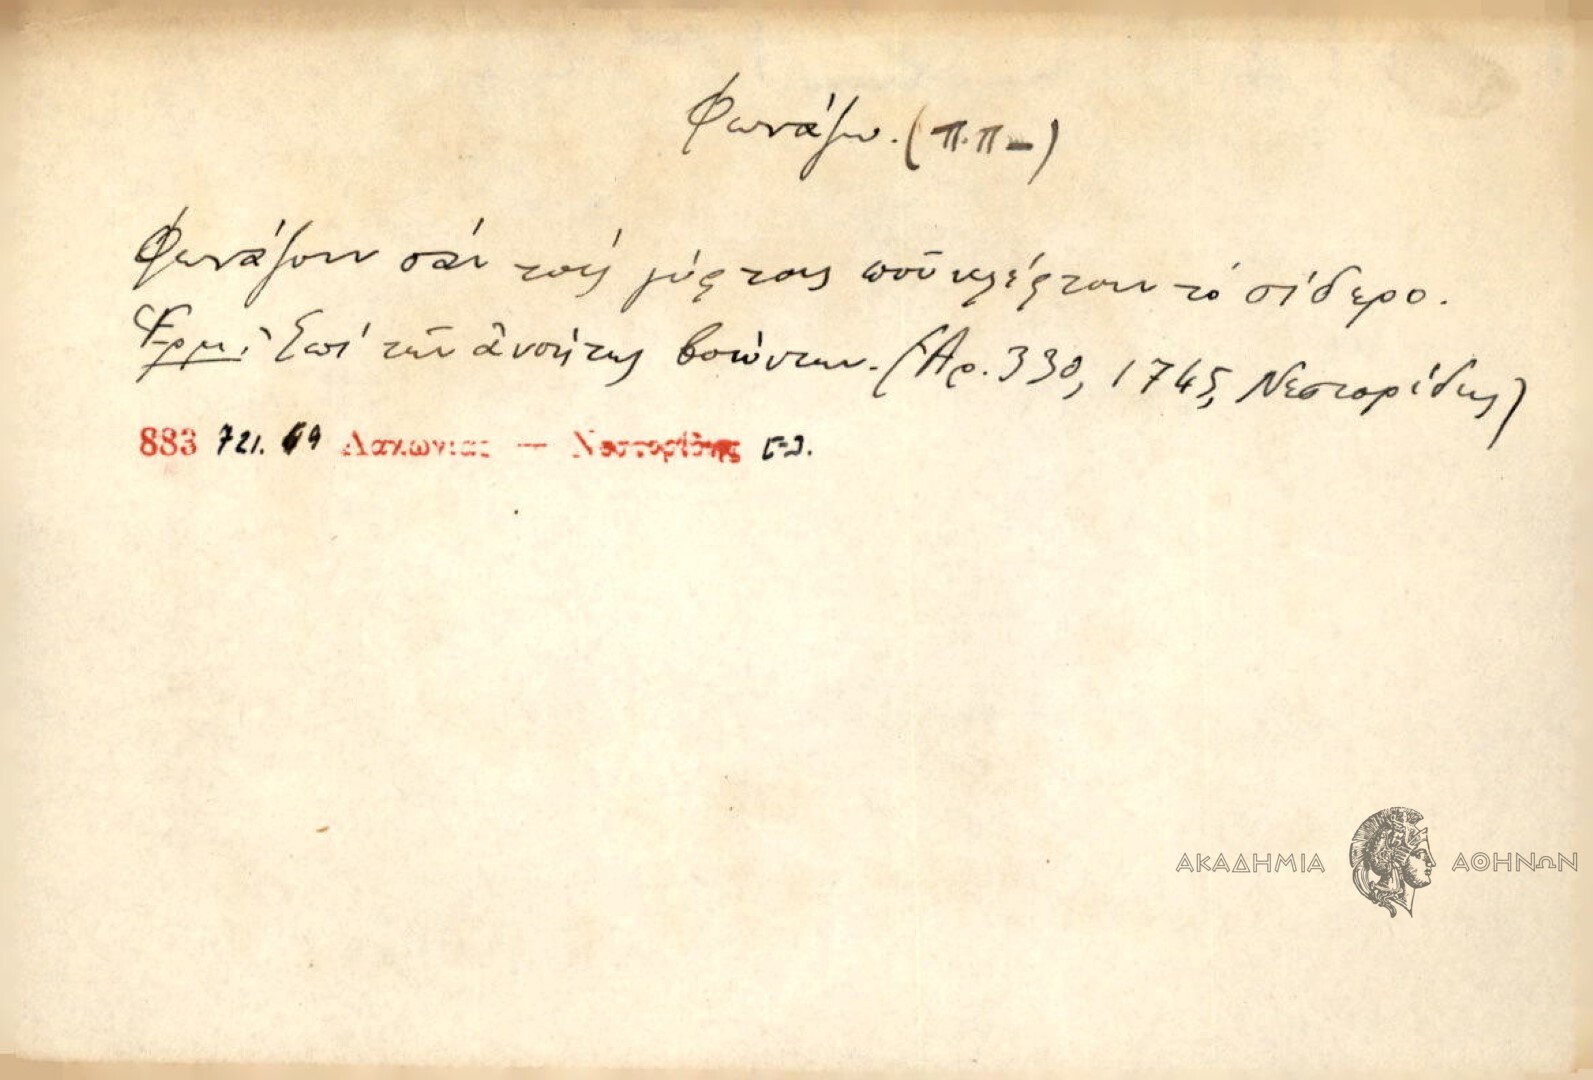 Φωνάζω. (π.π-)
Φωνάζουν σάν τούς γύφτους ποῦ κλέφτουν τό σίδερο.
Ἑρμ: Ἐπί τῶν ἀνοήτως βοώντων. (Ἀρ. 330, 1745, Νεστορίδης)
883 721. 69 Λακωνίας — Νεστορίδης
ΑΚΑΔΗΜΙΑ ΑΘΗΝΩΝ